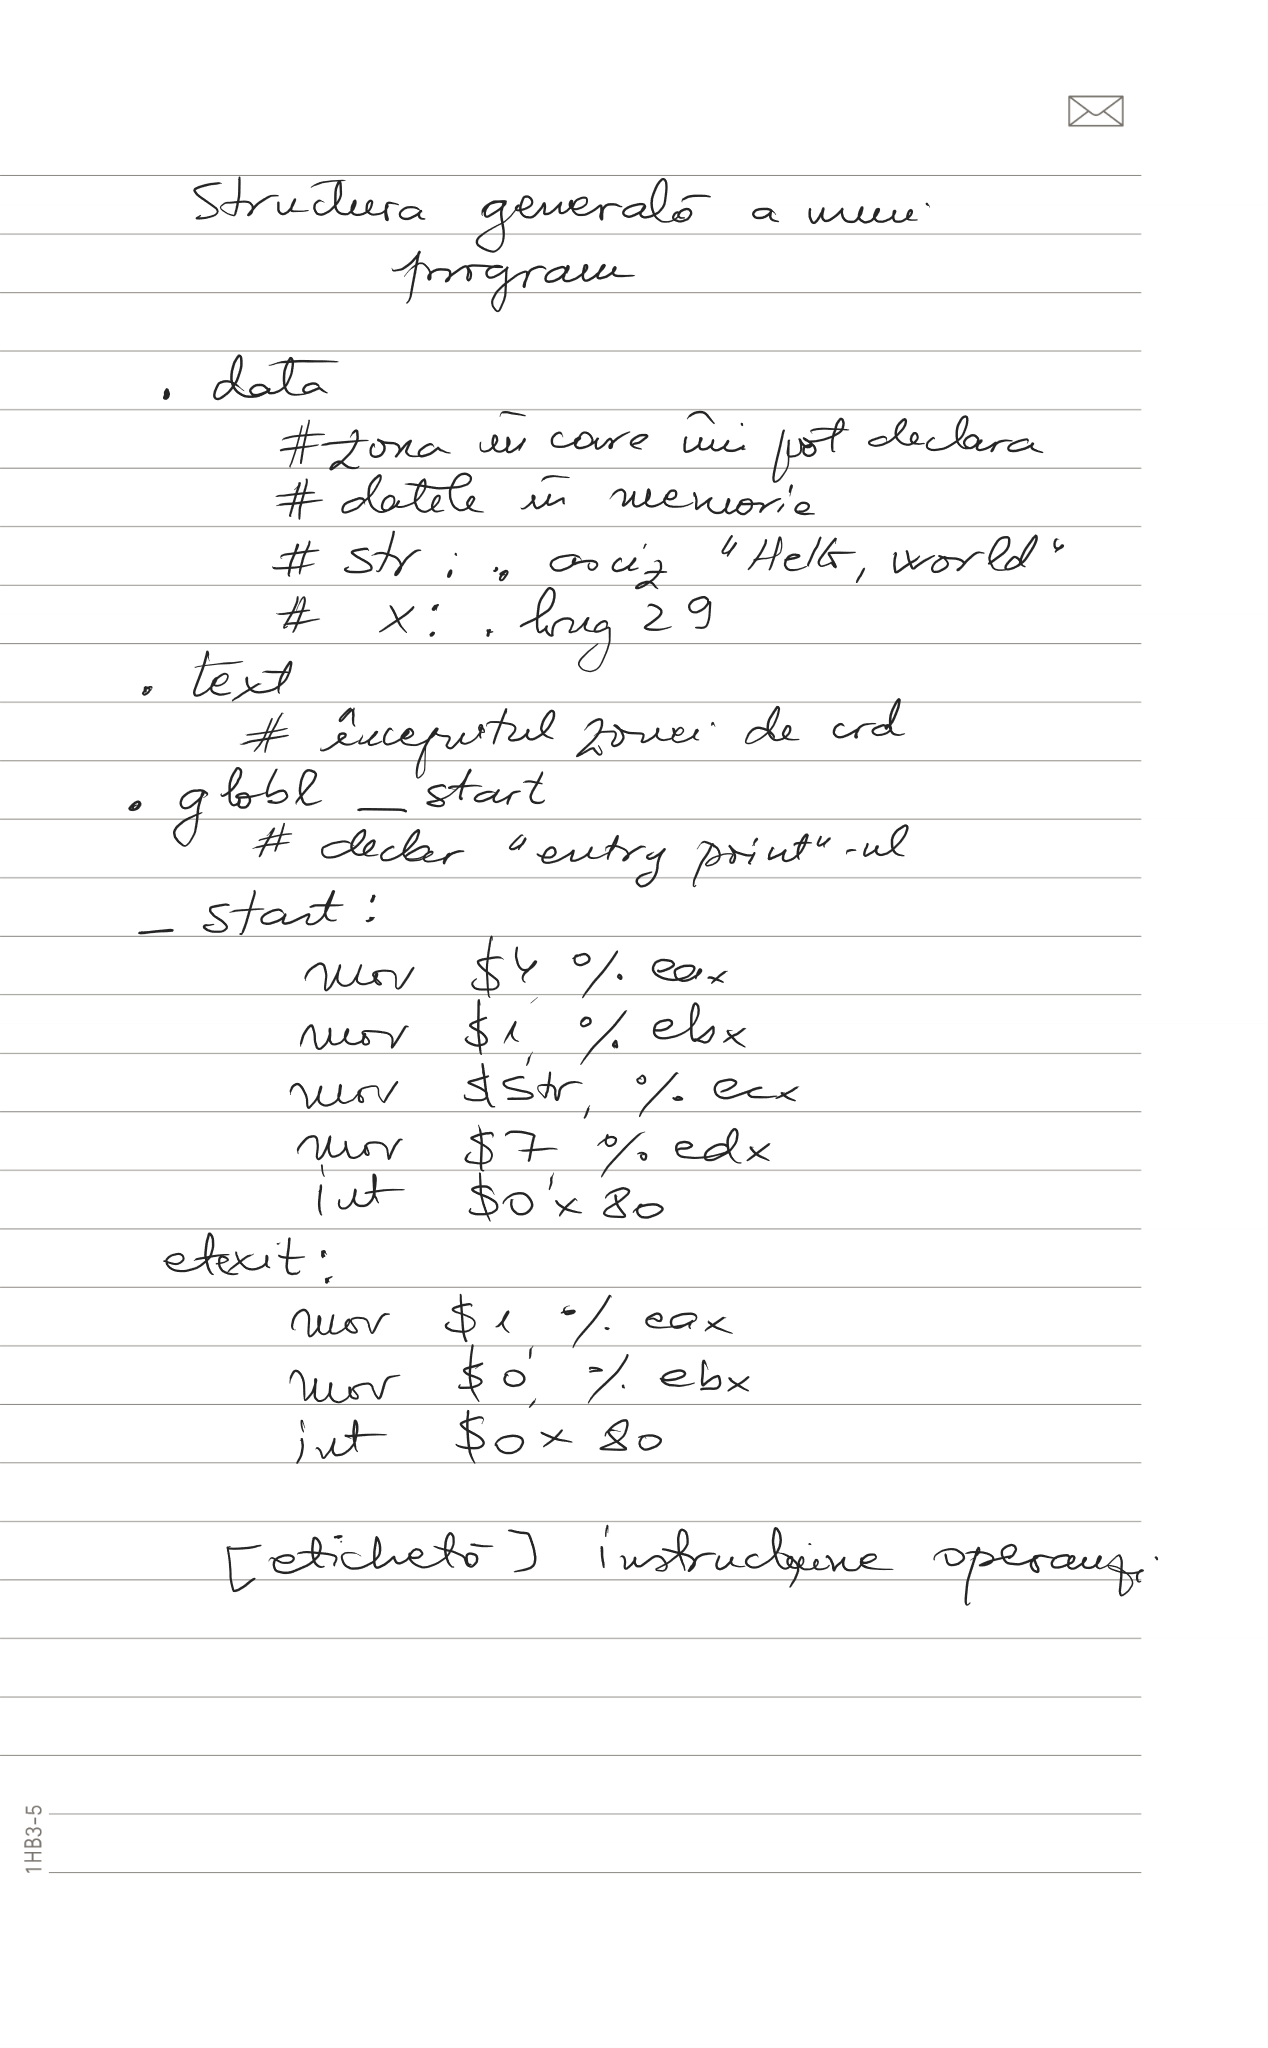 Structura generală a unui
program
. data
# zona în care îmi pot declara
# datele în memorie
# str : . asciz "Hello, world"
# x: . long 29
. text
# începutul zonei de cod
. globl _start
# declar "entry point"-ul
_start:
mov $4, %eax
mov $1, %ebx
mov $str, %ecx
mov $7, %edx
int $0x80
etexit:
mov $1, %eax
mov $0, %ebx
int $0x80
[etichetă] instrucțiune operanzi
1HB3-5